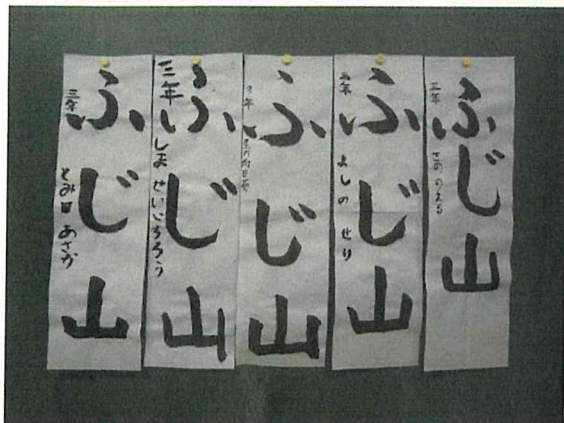 ふじ山
三年
さの のえる
ふじ山
三年
よしの せり
ふじ山
三年
ふじ山
三年
しま せいごろう
ふじ山
三年
とみ田 あさか